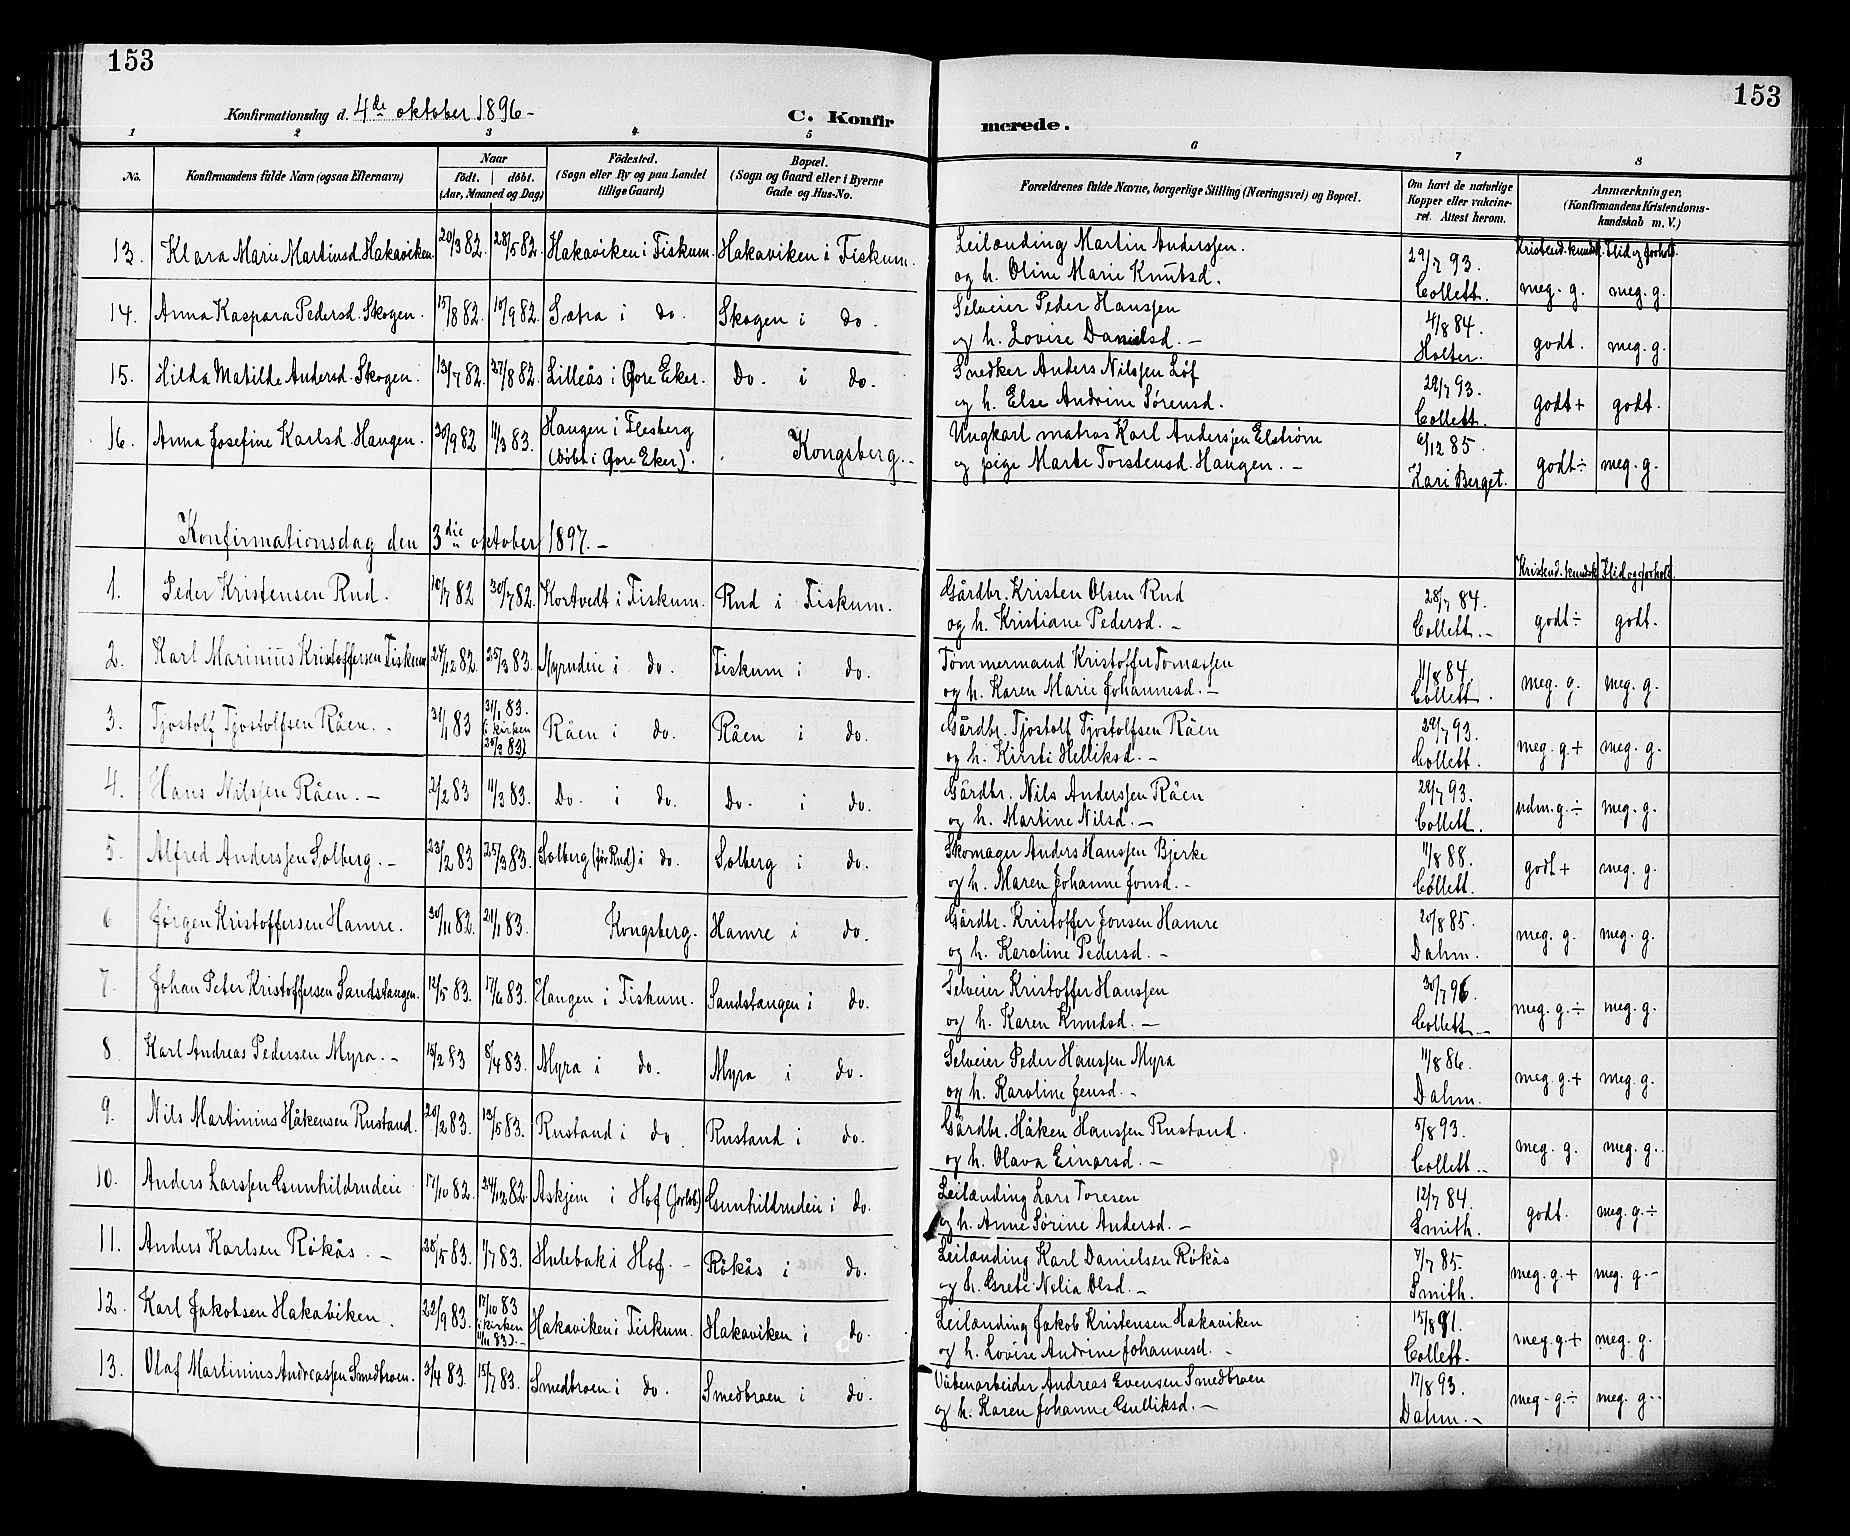 153
153
Konfirmationsdag d. 4de oktober 1896 -
C. Konfirmerede.
1 2 3 4 5 6 7 8
No.
Konfirmandens fulde Navn (ogsaa Efternavn)
Naar
Födt. döbt.
(Aar, Maaned og Dag)
Födested.
(Sogn eller By og paa Landet
tillige Gaard)
Bopæl.
(Sogn og Gaard eller i Byerne
Gade og Hus-No.
Forældrenes fulde Navne, borgerlige Stilling (Næringsvei) og Bopæl.
Om havt de naturlige
Kopper eller vakcine-
ret. Attest herom.
Anmærkninger,
(Konfirmandens Kristendoms-
kundskab m. V.)
Kristend.kundsk. Flid og forhold.
13. Klara Marie Martinsd. Hakaviken. 20/3 82. 28/5 82. Hakaviken i Fiskum. Hakaviken i Fiskum. Leilænding Martin Anderssen. 29/7 93.
og h. Oline Marie Knutsd. Collett. meg. g. meg. g.
14. Anna Kaspara Pedersd. Skogen. 15/8 82. 10/9 82. Sætra i do. Skogen i do. Selveier Peder Hanssen 4/8 84.
og h. Lovise Danielsd. - Holter. godt. meg. g.
15. Hilda Matilde Andersd. Skogen. 13/7 82. 27/8 82. Lilleås i Øvre Eker. Do. i do. Snedker Anders Nilssen Löf 29/7 93.
og h. Else Andrine Sörensd. Collett. godt + godt.
16. Anna Josefine Karlsd. Haugen. 30/9 82. 11/3 83. Haugen i Flesberg Ungkarl matros Karl Anderssen Elström 6/12 85.
(döbt i Øvre Eker). Kongsberg. - og pige Marte Torstensd. Haugen. - Kari Berget. godt ÷ meg. g.
Konfirmationsdag den 3die oktober 1897. -
Kristend.kundsk. Flid og forhold.
1. Peder Kristensen Rud. 10/7 82 30/7 82. Kortvedt i Fiskum. Rud i Fiskum. Gårdbr. Kristen Olsen Rud 28/7 84.
og h. Kristiane Pedersd. - Collett. - godt ÷ godt.
2. Karl Marinius Kristoffersen Fiskum 27/12 82. 25/3 83. Myrudeie i do. Fiskum i do. Tømmermand Kristoffer Tomassen 11/8 84.
og h. Karen Marie Johannesd. - Collett. meg. g. meg. g.
3. Tjostolf Tjostolfsen Råen. - 31/1 83 31/1 83. Råen i do. Råen i do. Gårdbr. Tjostolf Tjostolfsen Råen 29/7 93.
(i kirken
og h. Kirsti Helliksd. - Collett. meg. g + meg. g.
4. Hans Nilssen Råen. - 2/2 83 11/3 83. Do. i do. Do. i do. Gårdbr. Nils Anderssen Råen 29/7 93.
og h. Martine Nilsd. - Collett. udm. g. ÷ meg. g.
5. Alfred Anderssen Solberg. - 23/2 83 25/3 83. Solberg (för Rud) i do. Solberg i do. Skomager Anders Hanssen Bjerke 11/8 88.
og h. Maren Johanne Jonsd. - Collett. godt + meg. g.
6 Jørgen Kristoffersen Hamre. 30/11 82. 21/1 83. Kongsberg. Hamre i do. Gårdbr. Kristoffer Jonsen Hamre 20/8 85.
og h. Karoline Pedersd. - Dahm. meg. g. meg. g.
7. Johan Peter Kristoffersen Sandstangen. 12/5 83. 17/6 83. Haugen i Fiskum. Sandstangen i do. Selveier Kristoffer Hanssen 30/7 96.
og h. Karen Knudsd. - Collett. - meg. g. ÷ meg. g.
8. Karl Andreas Pedersen Myra. - 15/2 83 8/4 83. Myra i do. Myra i do. Selveier Peder Hanssen Myra 11/8 86.
og h. Karoline Jensd. - Dahm. meg. g. + meg. g.
9. Nils Martinius Håkensen Rustand. 20/2 83. 13/5 83. Rustand i do. Rustand i do. Gårdbr. Håken Hanssen Rustand. 5/8 93.
og h. Olava Einarsd. - Collett. - meg. g. meg. g. -
10. Anders Larssen Gunhildrudeie 17/10 82. 24/12 82. Askjem i Hof (Jarlsb.) Gunhildrudeie i do. Leilænding Lars Toresen 12/7 84.
og h. Anne Sörine Andersd. - Smith. godt. meg. g. ÷
11. Anders Karlsen Rökås. - 28/5 83. 1/7 83. Hulebak i Hof. - Rökås i do. Leilænding Karl Danielsen Rökås 7/7 85.
og h. Grete Nelia Olsd. - Smith. meg. g. + meg. g. -
12. Karl Jakobsen Hakaviken. 22/9 83. 17/10 83 Hakaviken i Fiskum. Hakaviken i do. Leilænding Jakob Kristensen Hakaviken 15/8 91.
(i kirken
11/11 83). - og h. Lovise Andrine Johannesd. - Collett. meg. g. + meg. g.
13. Olaf Martinius Andreassen Smedbroen. 3/4 83. 15/7 83. Smedbroen i do. Smedbroen i do. Våbenarbeider Andreas Evensen Smedbroen 17/8 93.
og h. Karen Johanne Gulliksd. - Dahm. - meg. g. ÷ meg. g. -